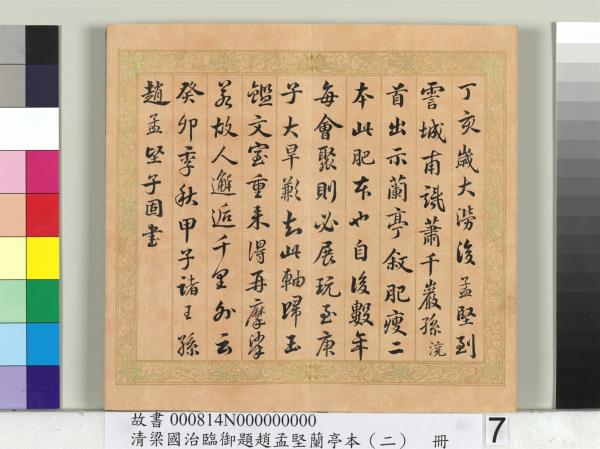 丁亥歲大澇後孟堅到
霅城甫識蕭千巖孫浣
首出示蘭亭叙肥瘦二
本此肥本也自後數年
每會聚則必展玩至庚
子大旱歉去此軸歸玉
鑑文室重来得再摩挲
若故人邂逅千里外云
癸卯季秋甲子諸王孫
趙孟堅子固書
故書 000814N000000000
清梁國治臨御題趙孟堅蘭亭本（二） 冊
7